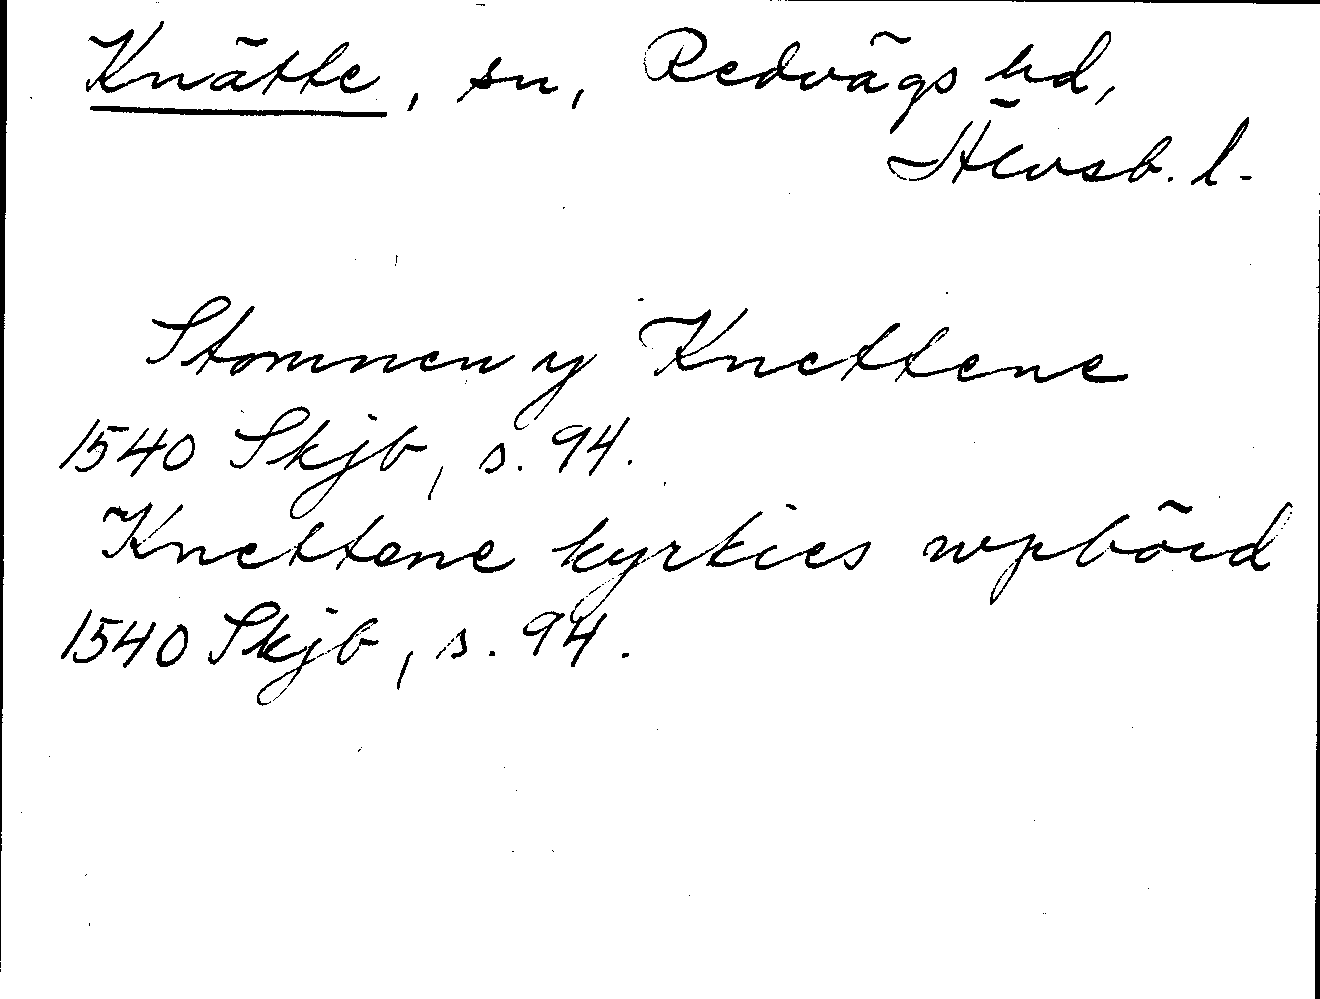 Knätte, sn, Redvägs hd,
Älvsb. l.
Stomnen y Knettene
1540 Skjb, s. 94.
Knettene kyrkies wpbörd
1540 Skjb, s. 94.